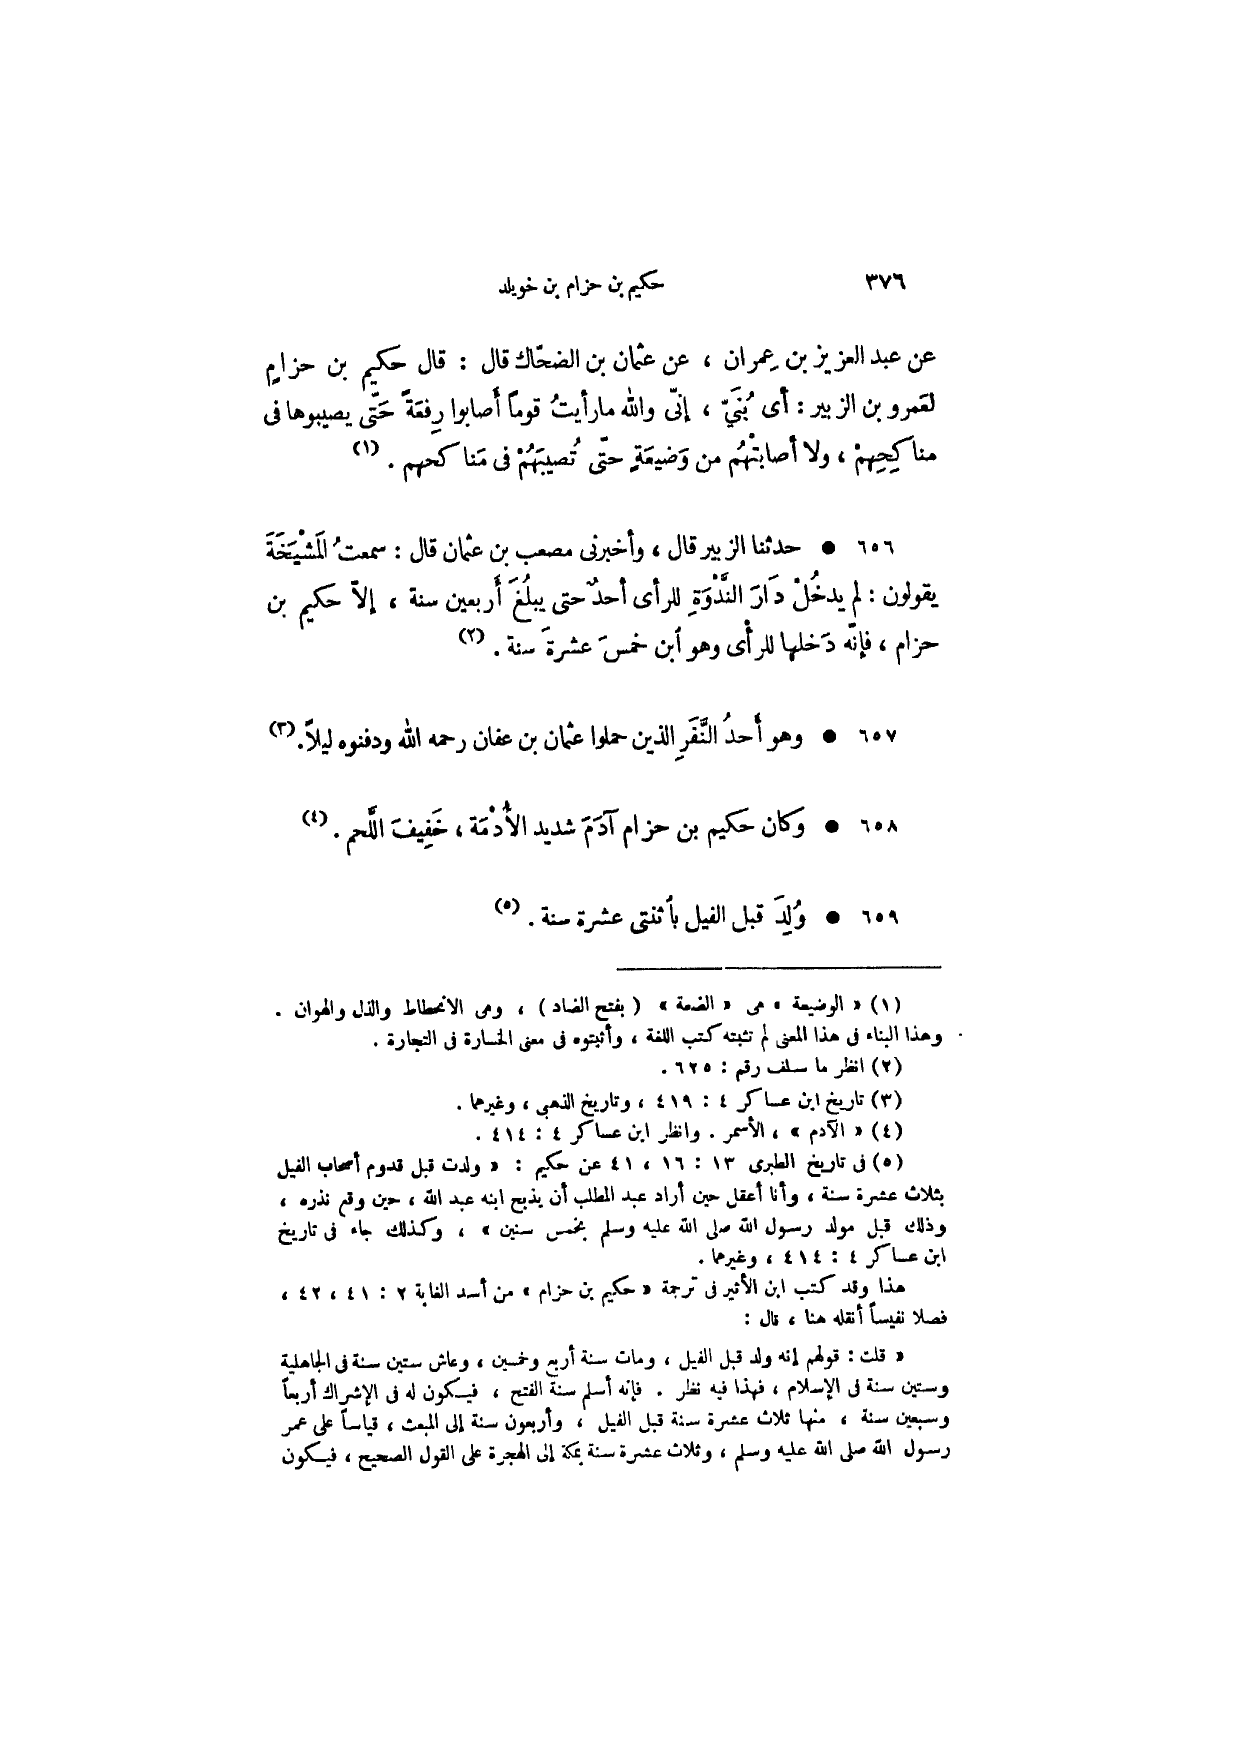 ٣٧٦ حكيم بن حزام بن خويلد
عن عبد العزيز بن عِمران ، عن عثمان بن الضحّاك قال : قال حكيم بن حزامٍ
لعَمرو بن الزبير : أى بُنَيّ ، إنّى والله مارأيتُ قوماً أصابوا رِفعَةً حَتَّى يصيبوها فى
مناكِحِهِمْ ، ولا أصابتْهُم من وَضيعَةٍ حتّى تُصيبَهُمْ فى مَناكحهم . (١)
٦٥٦ • حدثنا الزبير قال ، وأخبرنى مصعب بن عثمان قال : سمعتُ المَشْيَخَةَ
يقولون : لم يدخُلْ دَارَ النَّدْوَةِ للرأى أحدٌ حتى يبلُغَ أَربعين سنة ، إلاّ حكيم بن
حزام ، فإنّه دَخلها للرأْى وهو ٱبن خمسَ عشرةَ سنة . (٢)
٦٥٧ • وهو أَحدُ النَّفَرِ الذين حملوا عثمان بن عفان رحمه الله ودفنوه ليلاً. (٣)
٦٥٨ • وكان حكيم بن حزام آدَمَ شديد الأُدْمَة ، خَفِيفَ اللَّحم . (٤)
٦٥٩ • وُلِدَ قبل الفيل بٱثنتى عشرة سنة . (٥)
(١) « الوضيعة » هى « الضعة » ( بفتح الضاد ) ، وهى الانحطاط والذل والهوان .
وهذا البناء فى هذا المعنى لم تثبته كتب اللغة ، وأثبتوه فى معنى الخسارة فى التجارة .
(٢) انظر ما سلف رقم : ٦٢٥ .
(٣) تاريخ ابن عساكر ٤ : ٤١٩ ، وتاريخ الذهبى ، وغيرهما .
(٤) « الآدم » ، الأسمر . وانظر ابن عساكر ٤ : ٤١٤ .
(٥) فى تاريخ الطبرى ١٣ : ١٦ ، ٤١ عن حكيم : « ولدت قبل قدوم أصحاب الفيل
بثلاث عشرة سنة ، وأنا أعقل حين أراد عبد المطلب أن يذبح ابنه عبد الله ، حين وقع نذره ،
وذلك قبل مولد رسول الله صلى الله عليه وسلم بخمس سنين » ، وكذلك جاء فى تاريخ
ابن عساكر ٤ : ٤١٤ ، وغيرهما .
هذا وقد كتب ابن الأثير فى ترجمة « حكيم بن حزام » من أسد الغابة ٢ : ٤١ ، ٤٢ ،
فصلا نفيساً أنقله هنا ، قال :
« قلت : قولهم إنه ولد قبل الفيل ، ومات سنة أربع وخمسين ، وعاش ستين سنة فى الجاهلية
وستين سنة فى الإسلام ، فهذا فيه نظر . فإنه أسلم سنة الفتح ، فيكون له فى الإشراك أربعاً
وسبعين سنة ، منها ثلاث عشرة سنة قبل الفيل ، وأربعون سنة إلى المبعث ، قياساً على عمر
رسول الله صلى الله عليه وسلم ، وثلاث عشرة سنة بمكة إلى الهجرة على القول الصحيح ، فيكون